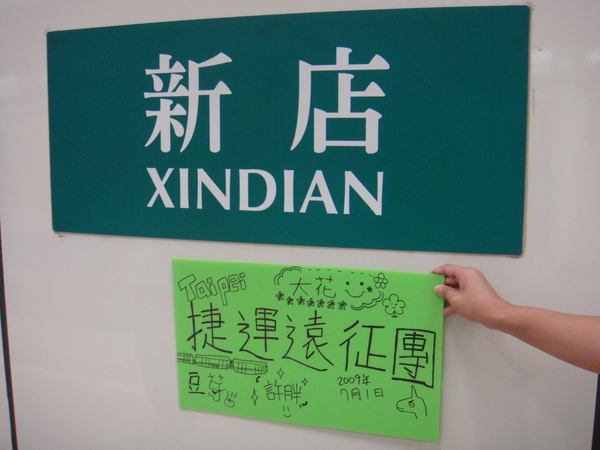 新店
XINDIAN
Taipei
大花
捷運遠征團
豆筍
許胖
2009年
7月1日